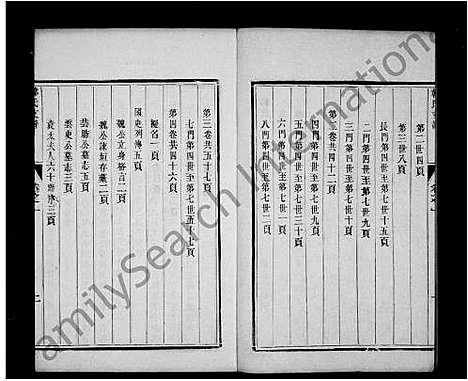 第二世四頁
第三世八頁
長門第四世至第七世九頁
二門第四世至第七世九頁
三門第四世至第七世二頁
第二卷共四十二頁
四門第四世至第七世九頁
五門第四世至第七世三十頁
六門第四世至第七世二頁
八門第四世至第七世二頁
第三卷共五十七頁
七門第四世至第七世五十七頁
第四卷共四十六頁
國史列傳五頁
題名一頁
魏公立身格言二頁
魏公諫垣存藁二頁
恭助公墓志五頁
樂吏公墓志三頁
袁太夫人六十壽序三頁
卷之一
二
FamilySearch International